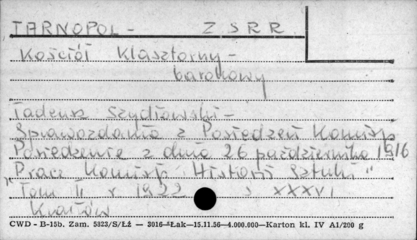 TARNOPOL - ZSRR
Kościół Klasztorny -
barokowy
Tadeusz Szydłowski -
Sprawozdania z Posiedzeń Komisji
Posiedzenie z dnia 26 października 1916
Prace Komisji Historii Sztuki"
"Tom II r 1922 s XXXVI
Kraków
CWD - B-15b. Zam. 5823/S/Łż — 3016-„Łak—15.11.56—4.000.000—Karton kl. IV A1/200 g